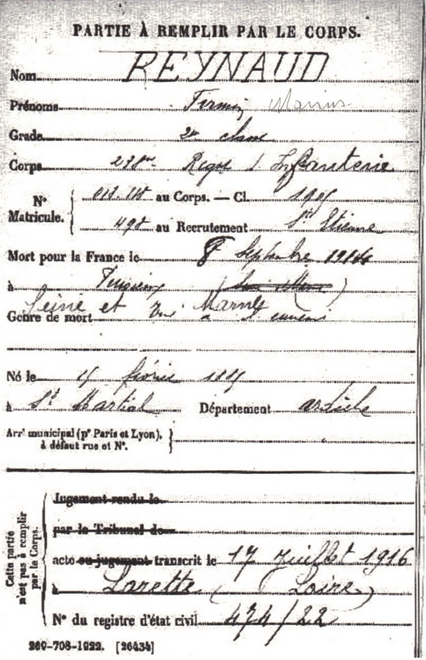 PARTIE À REMPLIR PAR LE CORPS.
Nom REYNAUD
Prénoms Firmin Marius
Grade 2e classe
Corps 238me Regt d'Infanterie
N° Matricule. au Corps. — Cl. 1905
498 au Recrutement St Etienne
Mort pour la France le 8 Septembre 1914
à
Seine et Marne
Genre de mort
Né le 15 février
à St Martial Département ardèche
Arrt municipal (pr Paris et Lyon), à défaut rue et N°.
Cette partie n'est pas à remplir par le Corps.
Jugement rendu le
par le Tribunal de
acte ou jugement transcrit le 17 Juillet 1916
à Lorette (Loire)
N° du registre d'état civil 474/22
269-708-1922. [26434]